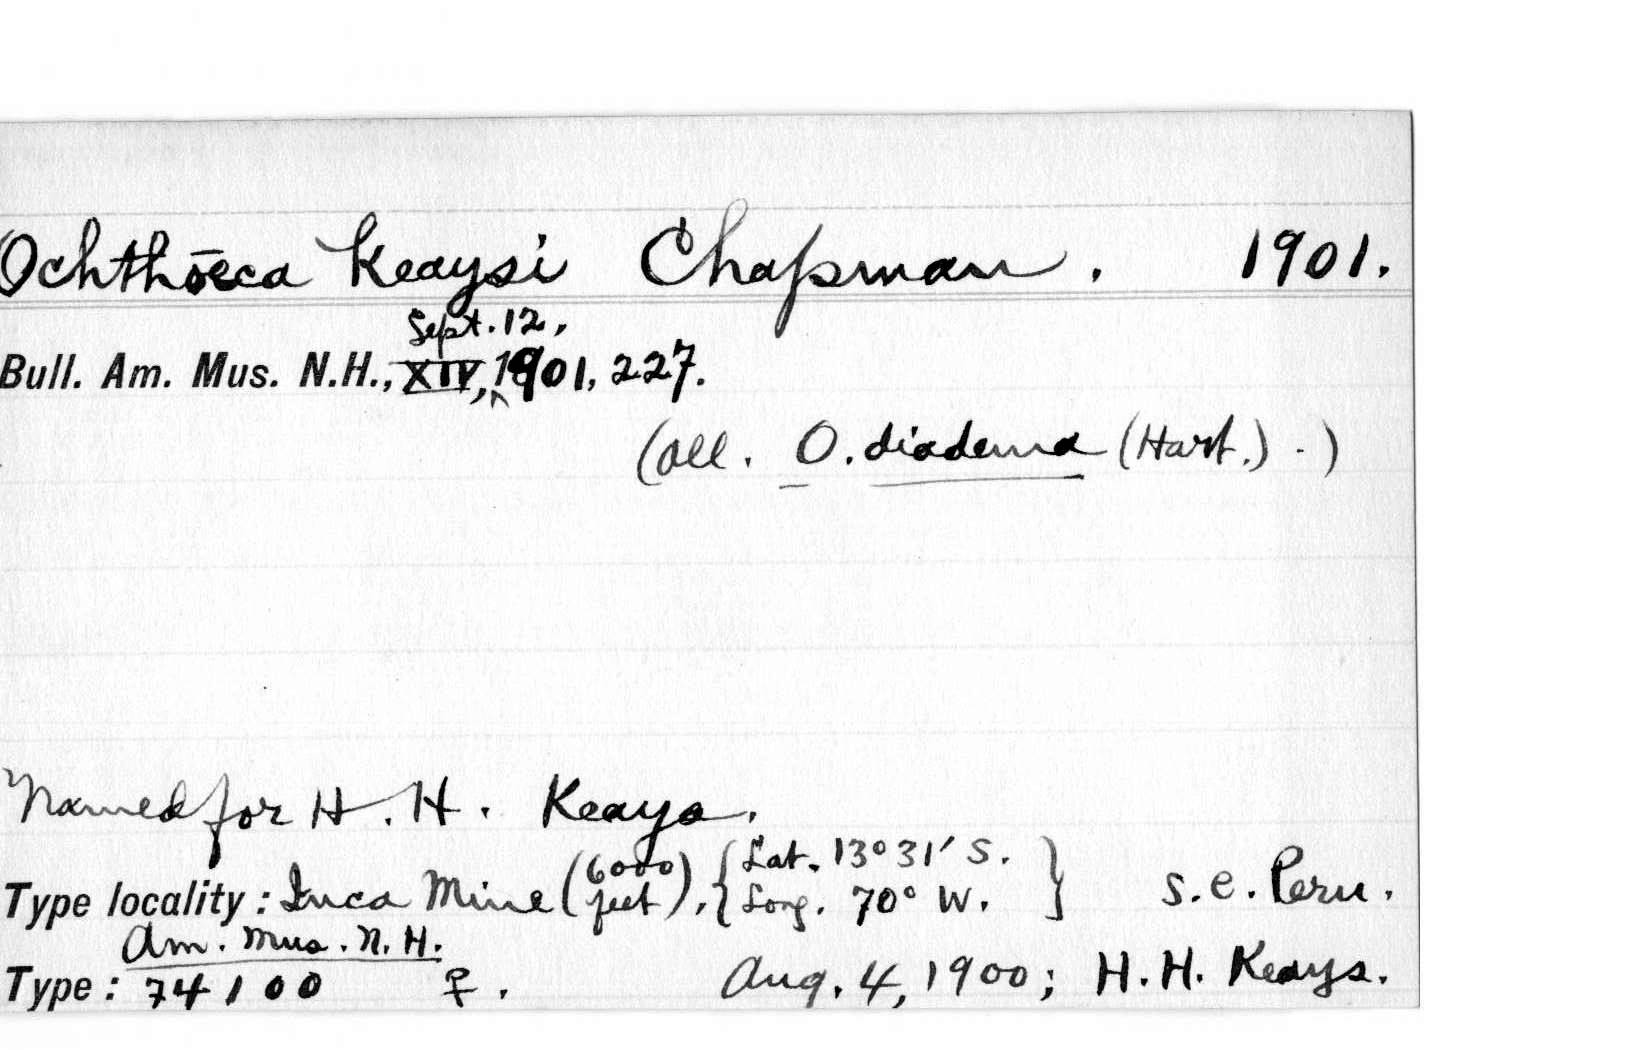 Ochthōeca Keaysi Chapman. 1901.
Sept. 12,
Bull. Am. Mus. N.H., XIV, 1901, 227.
(All. O. diadema (Hart.) - )
Named for H. H. Keays.
Type locality: Inca Mine (6000 feet), {Lat. 13° 31′ S. Long. 70° W.} S. E. Peru.
Am. Mus. N. H.
Type: 74100 ♀. Aug. 4, 1900; H. H. Keays.